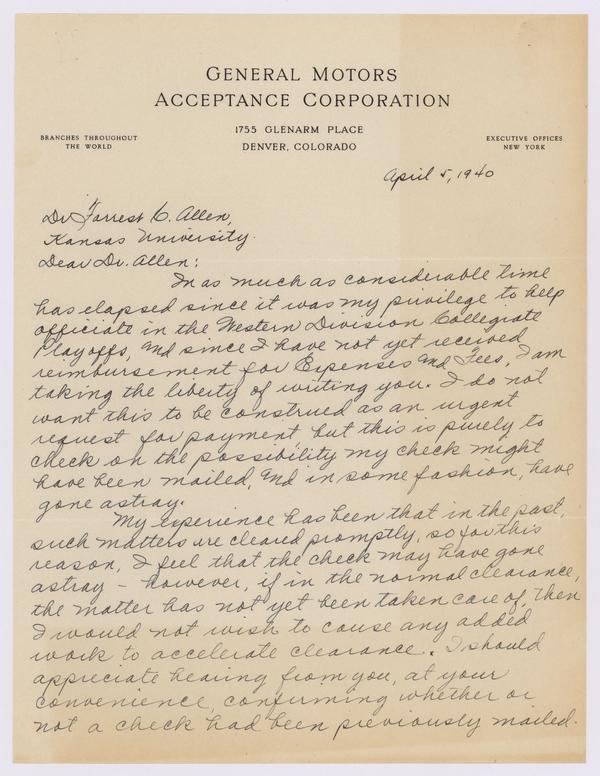 GENERAL MOTORS
ACCEPTANCE CORPORATION
1755 GLENARM PLACE
DENVER, COLORADO
BRANCHES THROUGHOUT
THE WORLD
EXECUTIVE OFFICES
NEW YORK
April 5, 1940
Dr. Forrest C. Allen,
Kansas University.
Dear Dr. Allen:
In as much as considerable time
has elapsed since it was my privilege to help
officiate in the Western Division Collegiate
Playoffs, and since I have not yet received
reimbursement for Expenses and Fees, I am
taking the liberty of writing you. I do not
want this to be construed as an urgent
request for payment, but this is purely to
check on the possibility my check might
have been mailed, and in some fashion, have
gone astray.
My experience has been that in the past,
such matters are cleared promptly, so for this
reason, I feel that the check may have gone
astray - however, if in the normal clearance,
the matter has not yet been taken care of, then
I would not wish to cause any added
work to accelerate clearance. I should
appreciate hearing from you, at your
convenience, confirming whether or
not a check had been previously mailed.